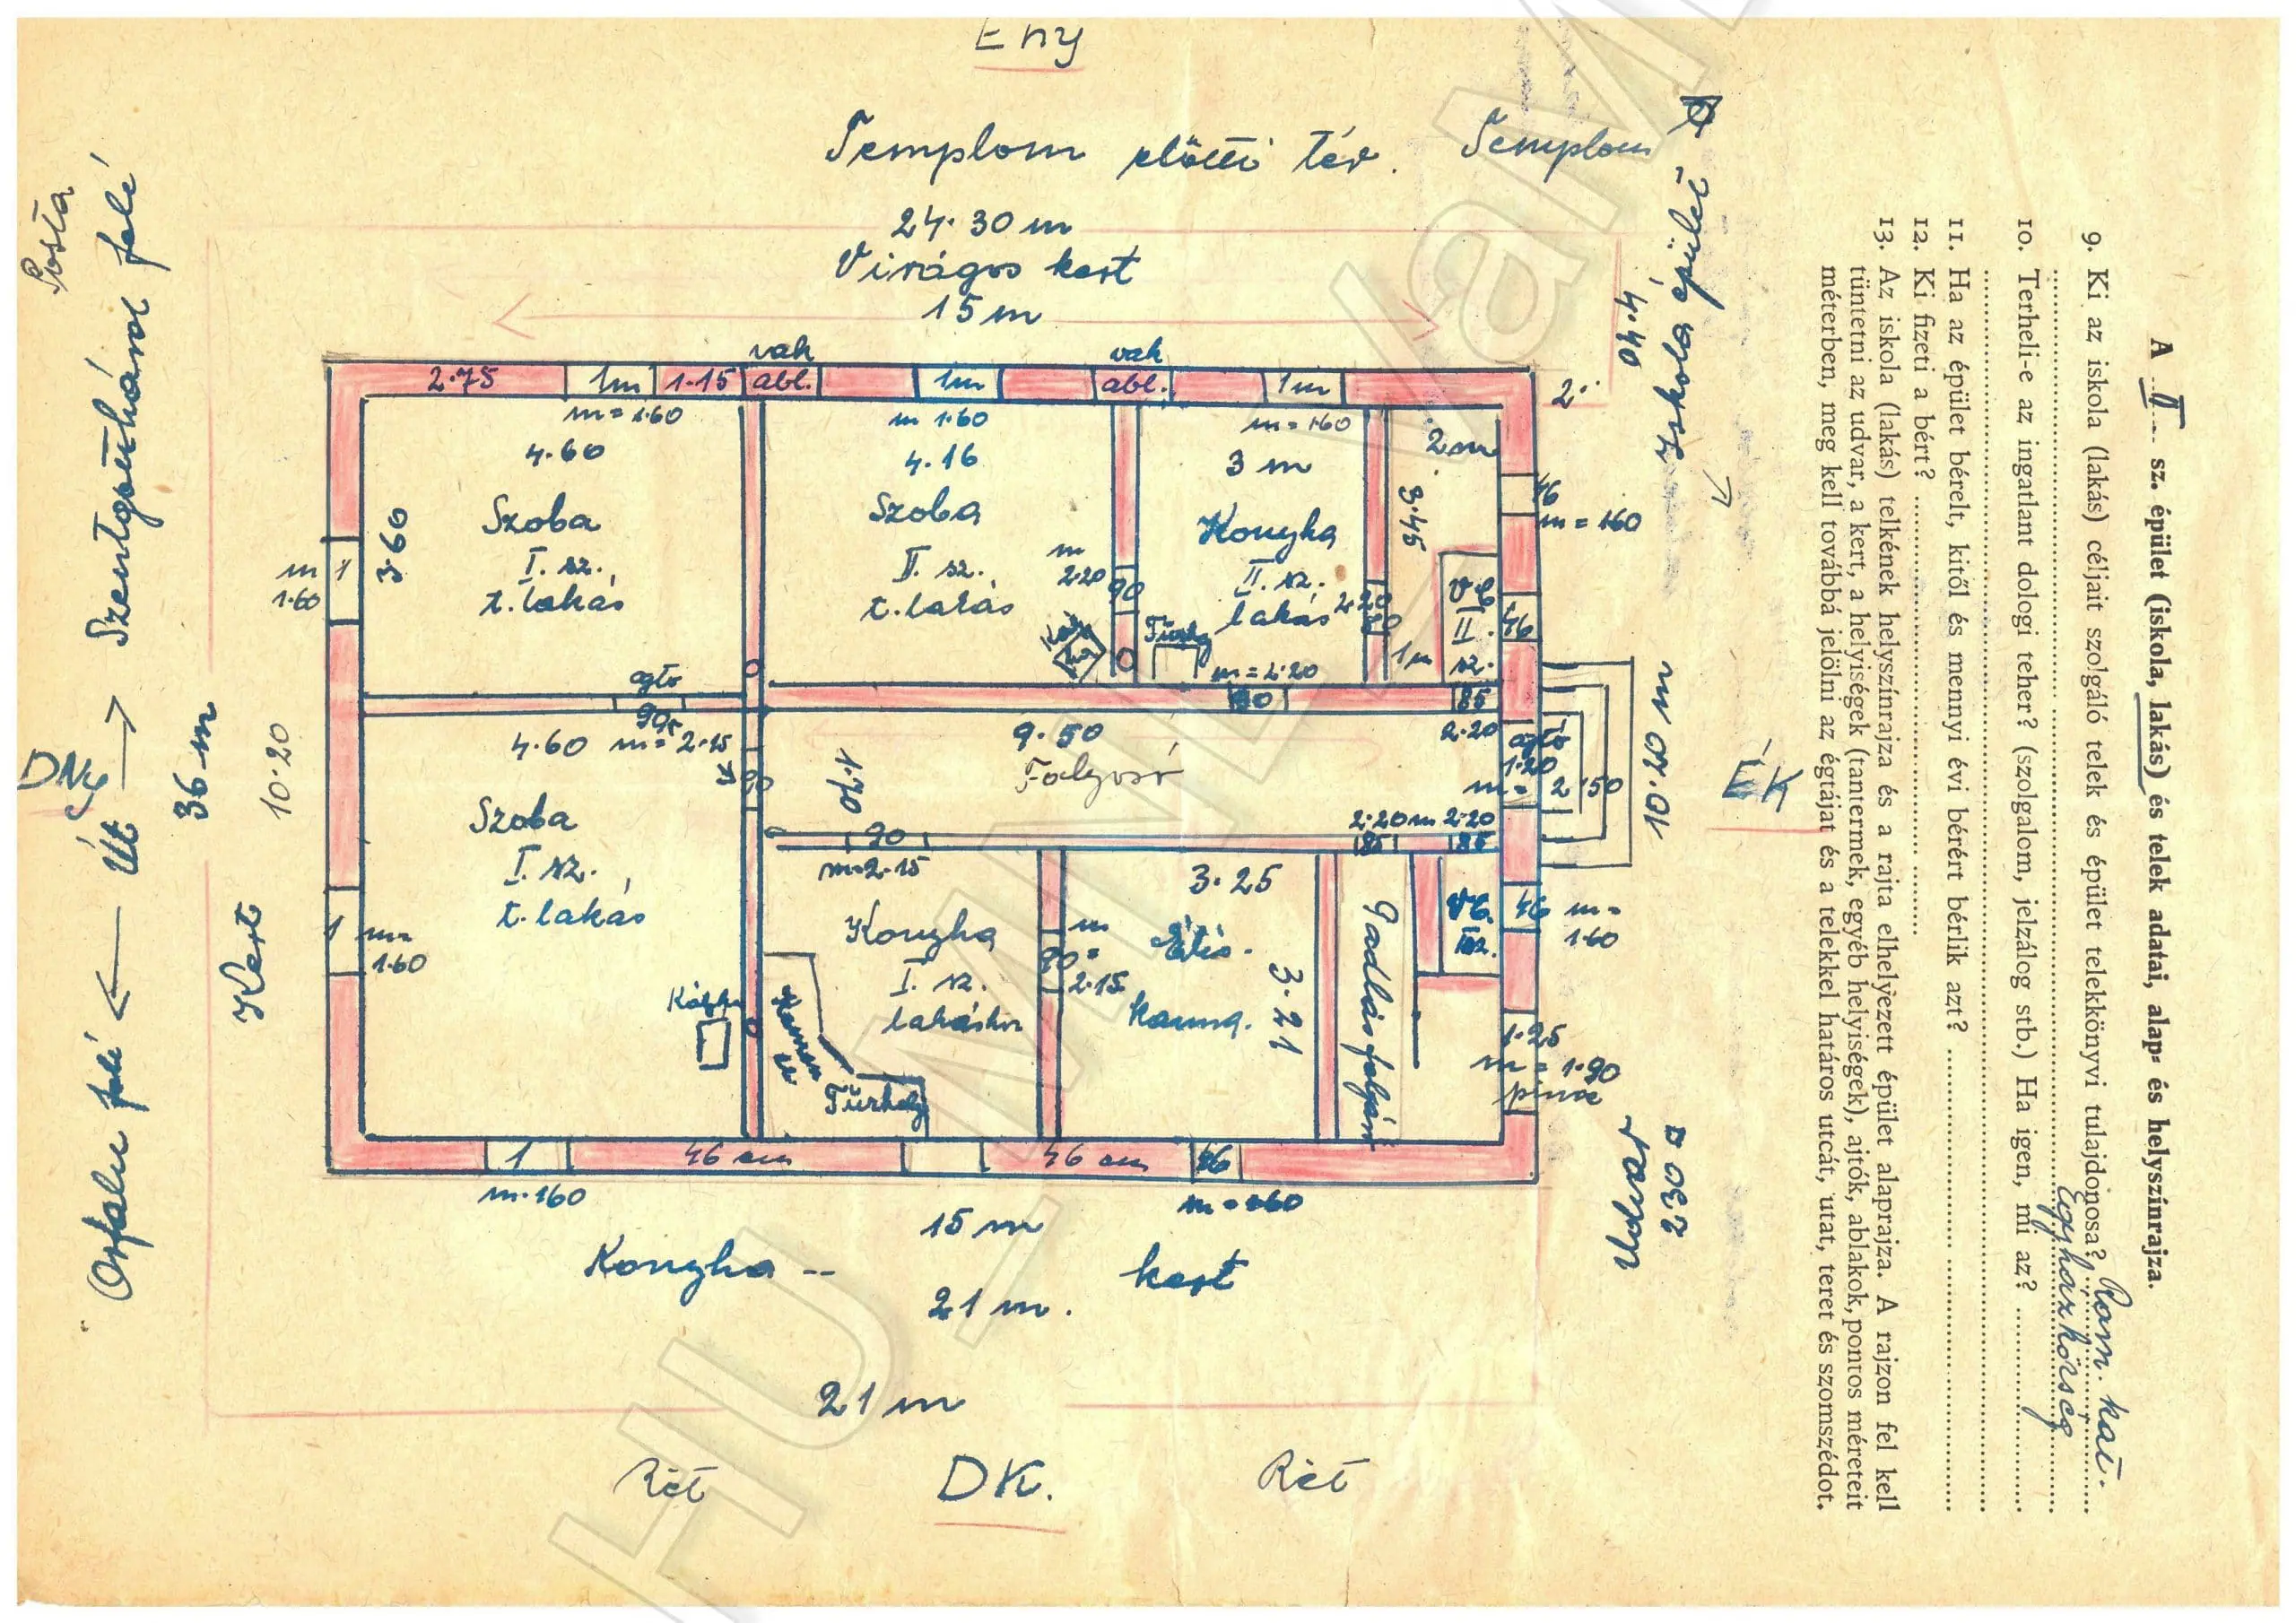 A II sz. épület (iskola, lakás) és telek adatai, alap= és helyszínrajza.
9. Ki az iskola (lakás) céljait szolgáló telek és épület telekkönyvi tulajdonosa? Rom. kat.
Egyházközség
10. Terheli-e az ingatlant dologi teher? (szolgalom, jelzálog stb.) Ha igen, mi az?
11. Ha az épület bérelt, kitől és mennyi évi bérért bérlik azt?
12. Ki fizeti a bért?
13. Az iskola (lakás) telkének helyszínrajza és a rajta elhelyezett épület alaprajza. A rajzon fel kell
tüntetni az udvar, a kert, a helyiségek (tantermek, egyéb helyiségek), ajtók, ablakok, pontos méreteit
méterben, meg kell továbbá jelölni az égtájat és a telekkel határos utcát, utat, teret és szomszédot.
ÉNy
Templom előtti tér. Templom
24.30 m
Virágos kert
15 m
4.40
Iskola épület
Posta
Szentgotthárd felé
Út
Orfalu felé
DNy
36 m
10.20
Kert
vak
vak
2.75
1m
1.15
abl.
1m
abl.
1m
2.
m=1.60
m 1.60
m=160
4.60
3.60
Szoba
I. sz.
t. lakás
m
1.60
1
4.16
Szoba
II. sz.
t. lakás
m
2.20
90
3 m
Konyha
II. sz.
lakás
2.20
80
Tűzhely
m=2.20
90
2m
3.45
1m
VC
II.
sz.
85
46
m=160
46
ajtó
90
4.60 m=2.15
90
9.50
Folyosó
1.70
2.20
ajtó
1.20
m=
2.150
10.60 m
ÉK
90
m=2.15
2.20 m 2.20
85
85
Szoba
I. sz.
t. lakás
1 m=
1.60
Kályha
Konyha
I. sz.
lakáshoz
Kemence
Tűzhely
m
90=
2.15
3.25
Élés-
kamra.
3.21
Padlásfeljáró
VC.
I sz.
46 m=
1.60
1.25
m=1.90
pince
1
46 cm
46 cm
46
m.160
15 m
m=160
Konyha-- kert
21 m.
230
udvar
21 m
Rét
DK.
Rét
HU_MNL_VaML